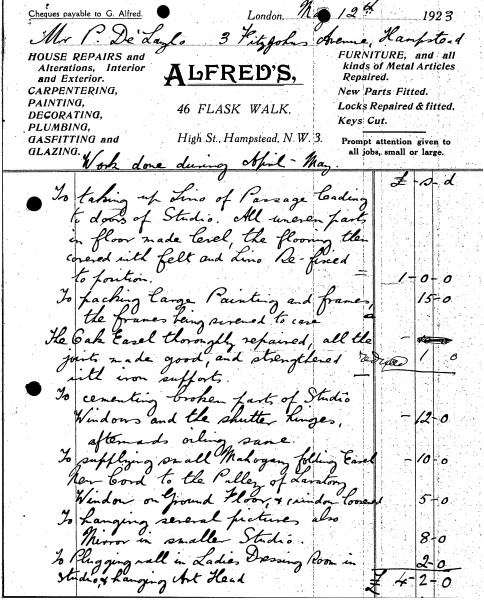 Cheques payable to G. Alfred.
London, May 12th 1923
Mr P. De Laszlo 3 Fitzjohns Avenue, Hampstead
HOUSE REPAIRS and
Alterations, Interior
and Exterior.
CARPENTERING,
PAINTING,
DECORATING,
PLUMBING,
GASFITTING and
GLAZING.
ALFRED'S,
46 FLASK WALK,
High St., Hampstead, N.W. 3.
FURNITURE, and all
kinds of Metal Articles
Repaired.
New Parts Fitted.
Locks Repaired & fitted.
Keys Cut.
Prompt attention given to
all jobs, small or large.
Work done during April - May
£ - s - d
To taking up Lino of Passage leading
to doors of Studio. All uneven parts
in floor made level, the flooring then
covered with felt and Lino Re-fixed
to position. 1 - 0 - 0
To packing large Painting and frame, 15 - 0
the frames being screwed to case
The Oak Easel thoroughly repaired, all the
joints made good, and strengthened 1 0
with iron supports.
To cementing broken parts of Studio
Windows and the shutter hinges, - 12 - 0
afterwards oiling same.
To supplying small Mahogany folding Easel - 10 - 0
New Cord to the Pulley of Lavatory
Window on Ground Floor, & window loosened 5 - 0
To hanging several pictures also
Mirror in smaller Studio. 8 - 0
To Plugging wall in Ladies Dressing Room in 2 - 0
Studio, & hanging Art Head
£ 4 - 2 - 0